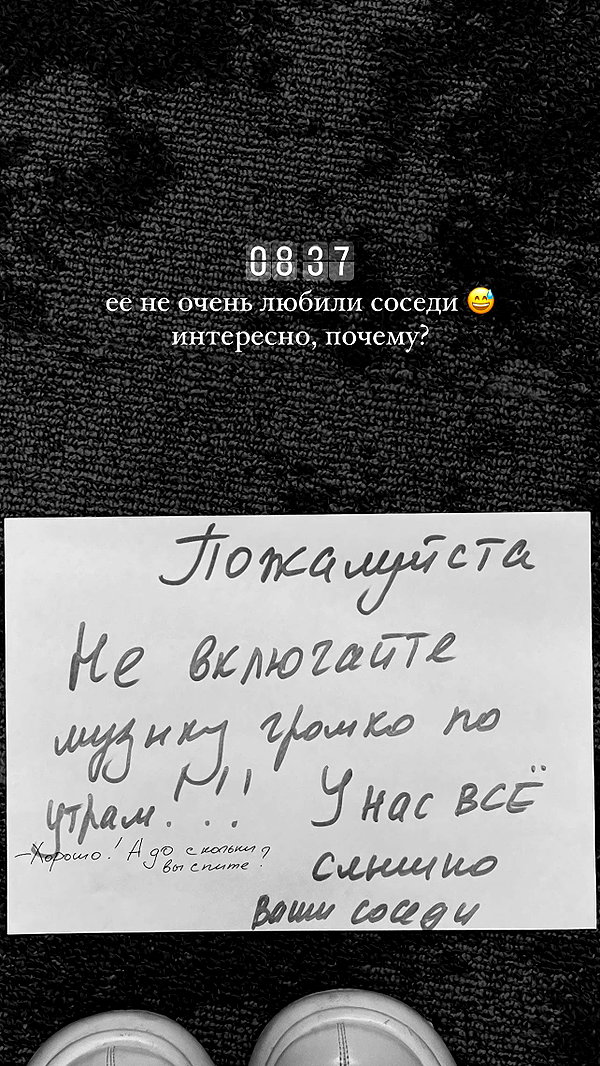 0837
ее не очень любили соседи 😅
интересно, почему?
Пожалуйста
Не включайте
музыку громко по
утрам!!! У нас ВСЁ
–Хорошо! А до скольки
вы спите?
слышно
Ваши соседи